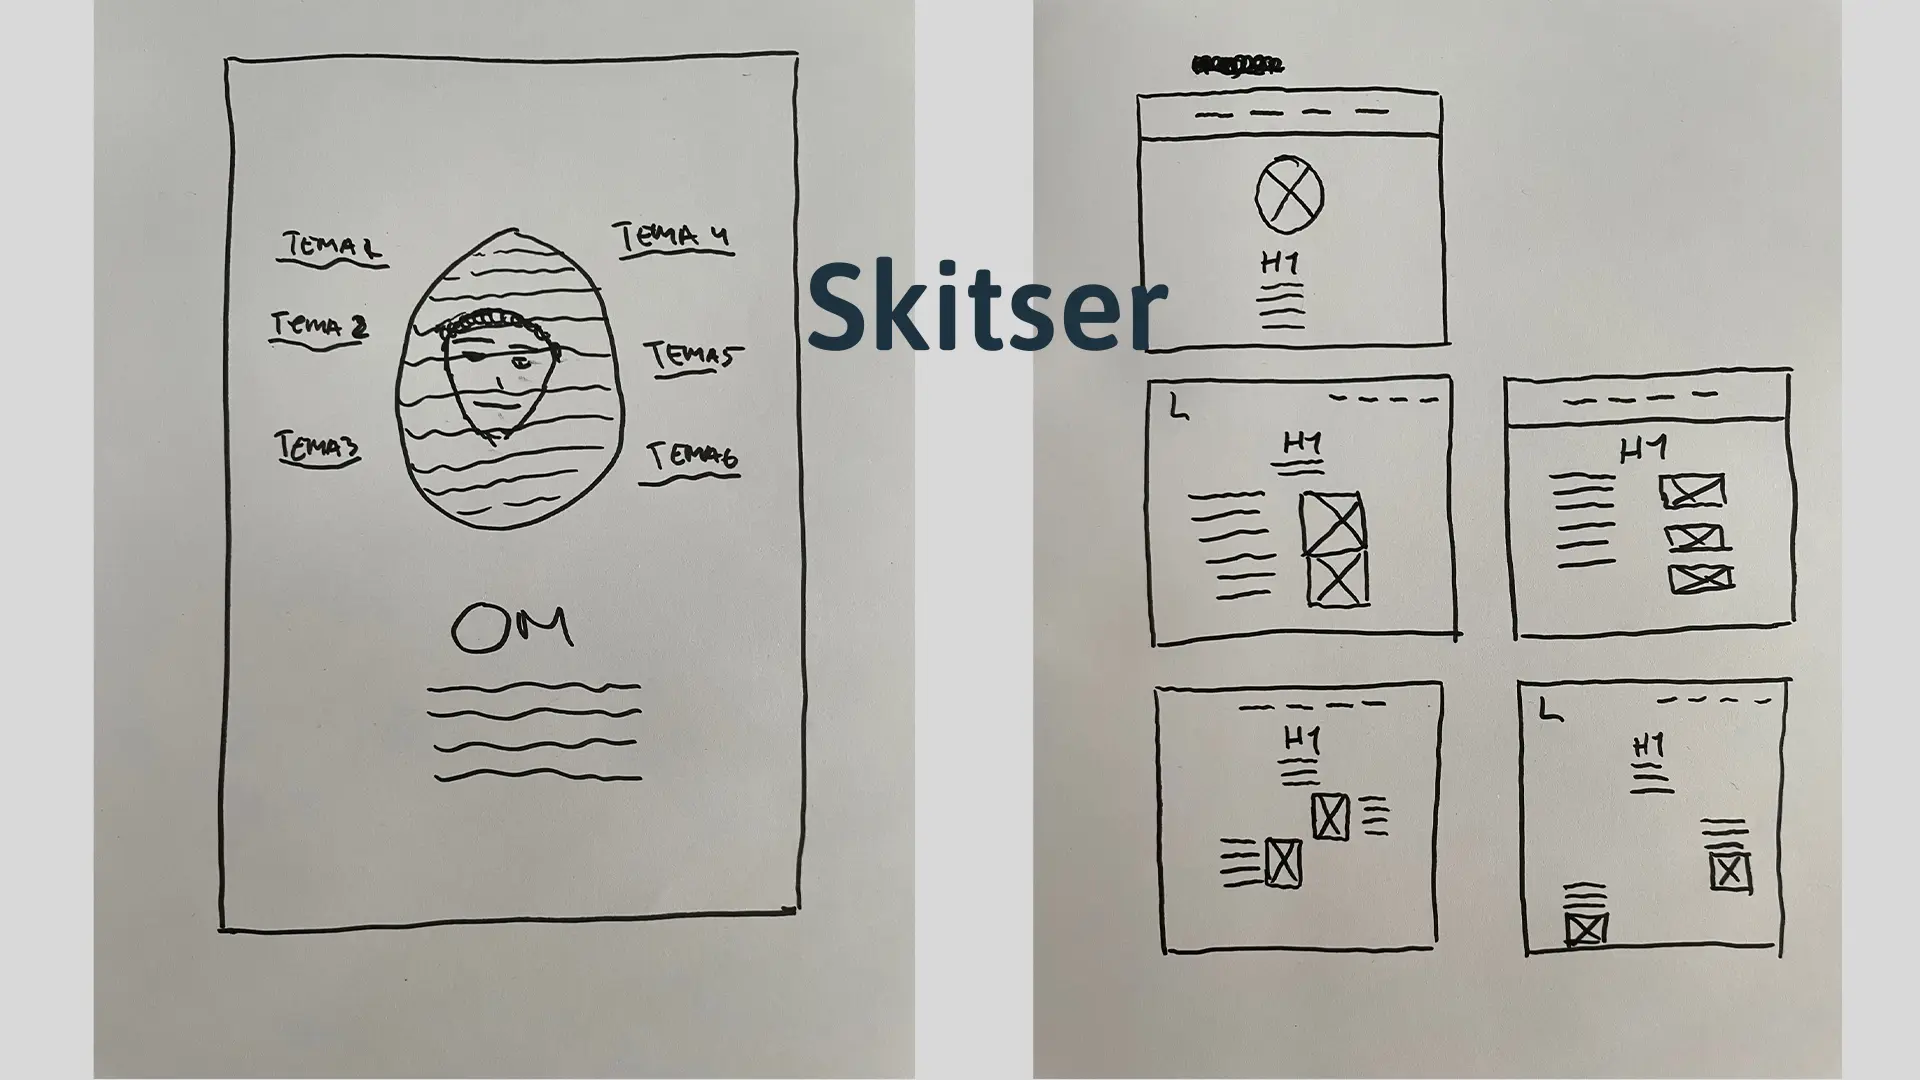 Skitser
TEMA 1
TEMA 4
TEMA 2
TEMA 5
TEMA 3
TEMA 6
OM
H1
L
H1
H1
H1
L
H1